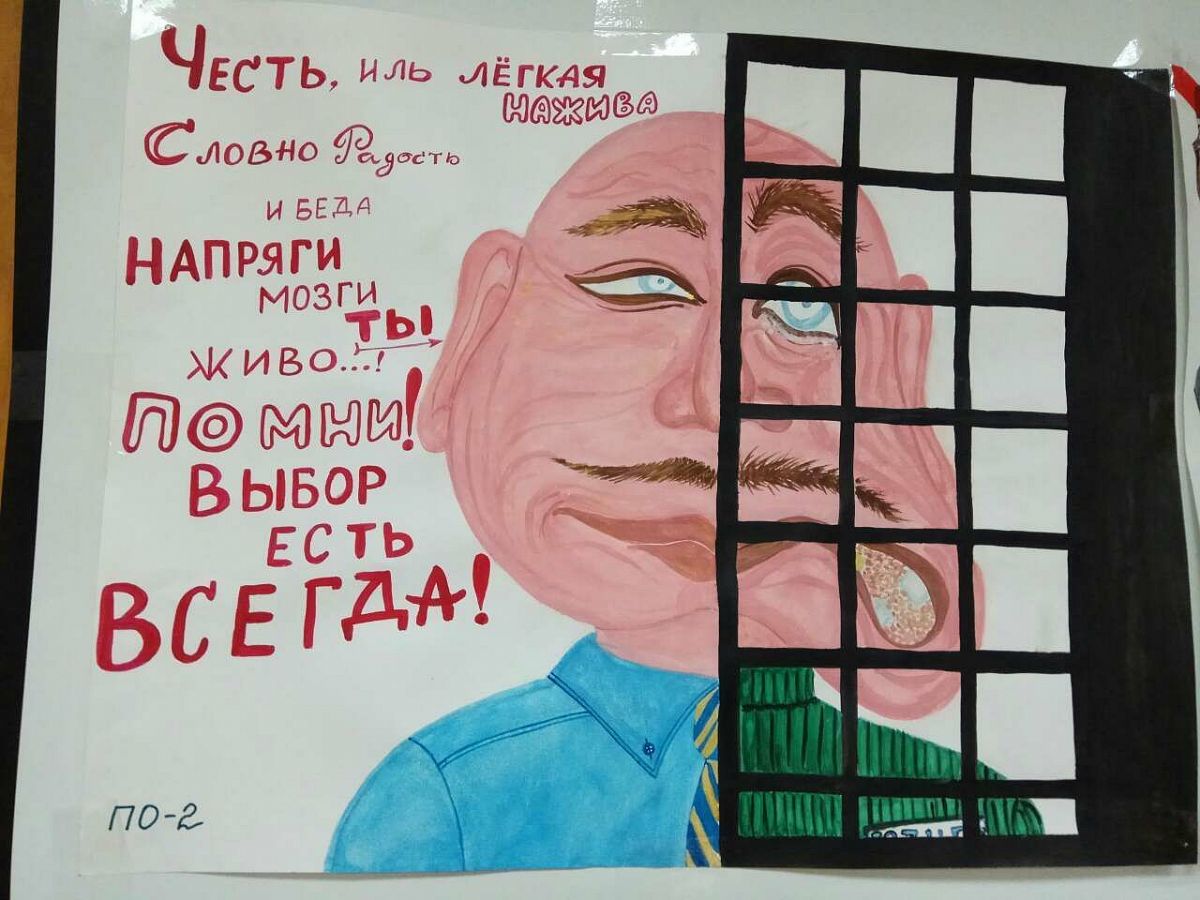 ЧЕСТЬ, ИЛЬ ЛЁГКАЯ
НАЖИВА
СЛОВНО РАДОСТЬ
И БЕДА
НАПРЯГИ
МОЗГИ
ТЫ
ЖИВО...!
ПОМНИ!
ВЫБОР
ЕСТЬ
ВСЕГДА!
ПО-2